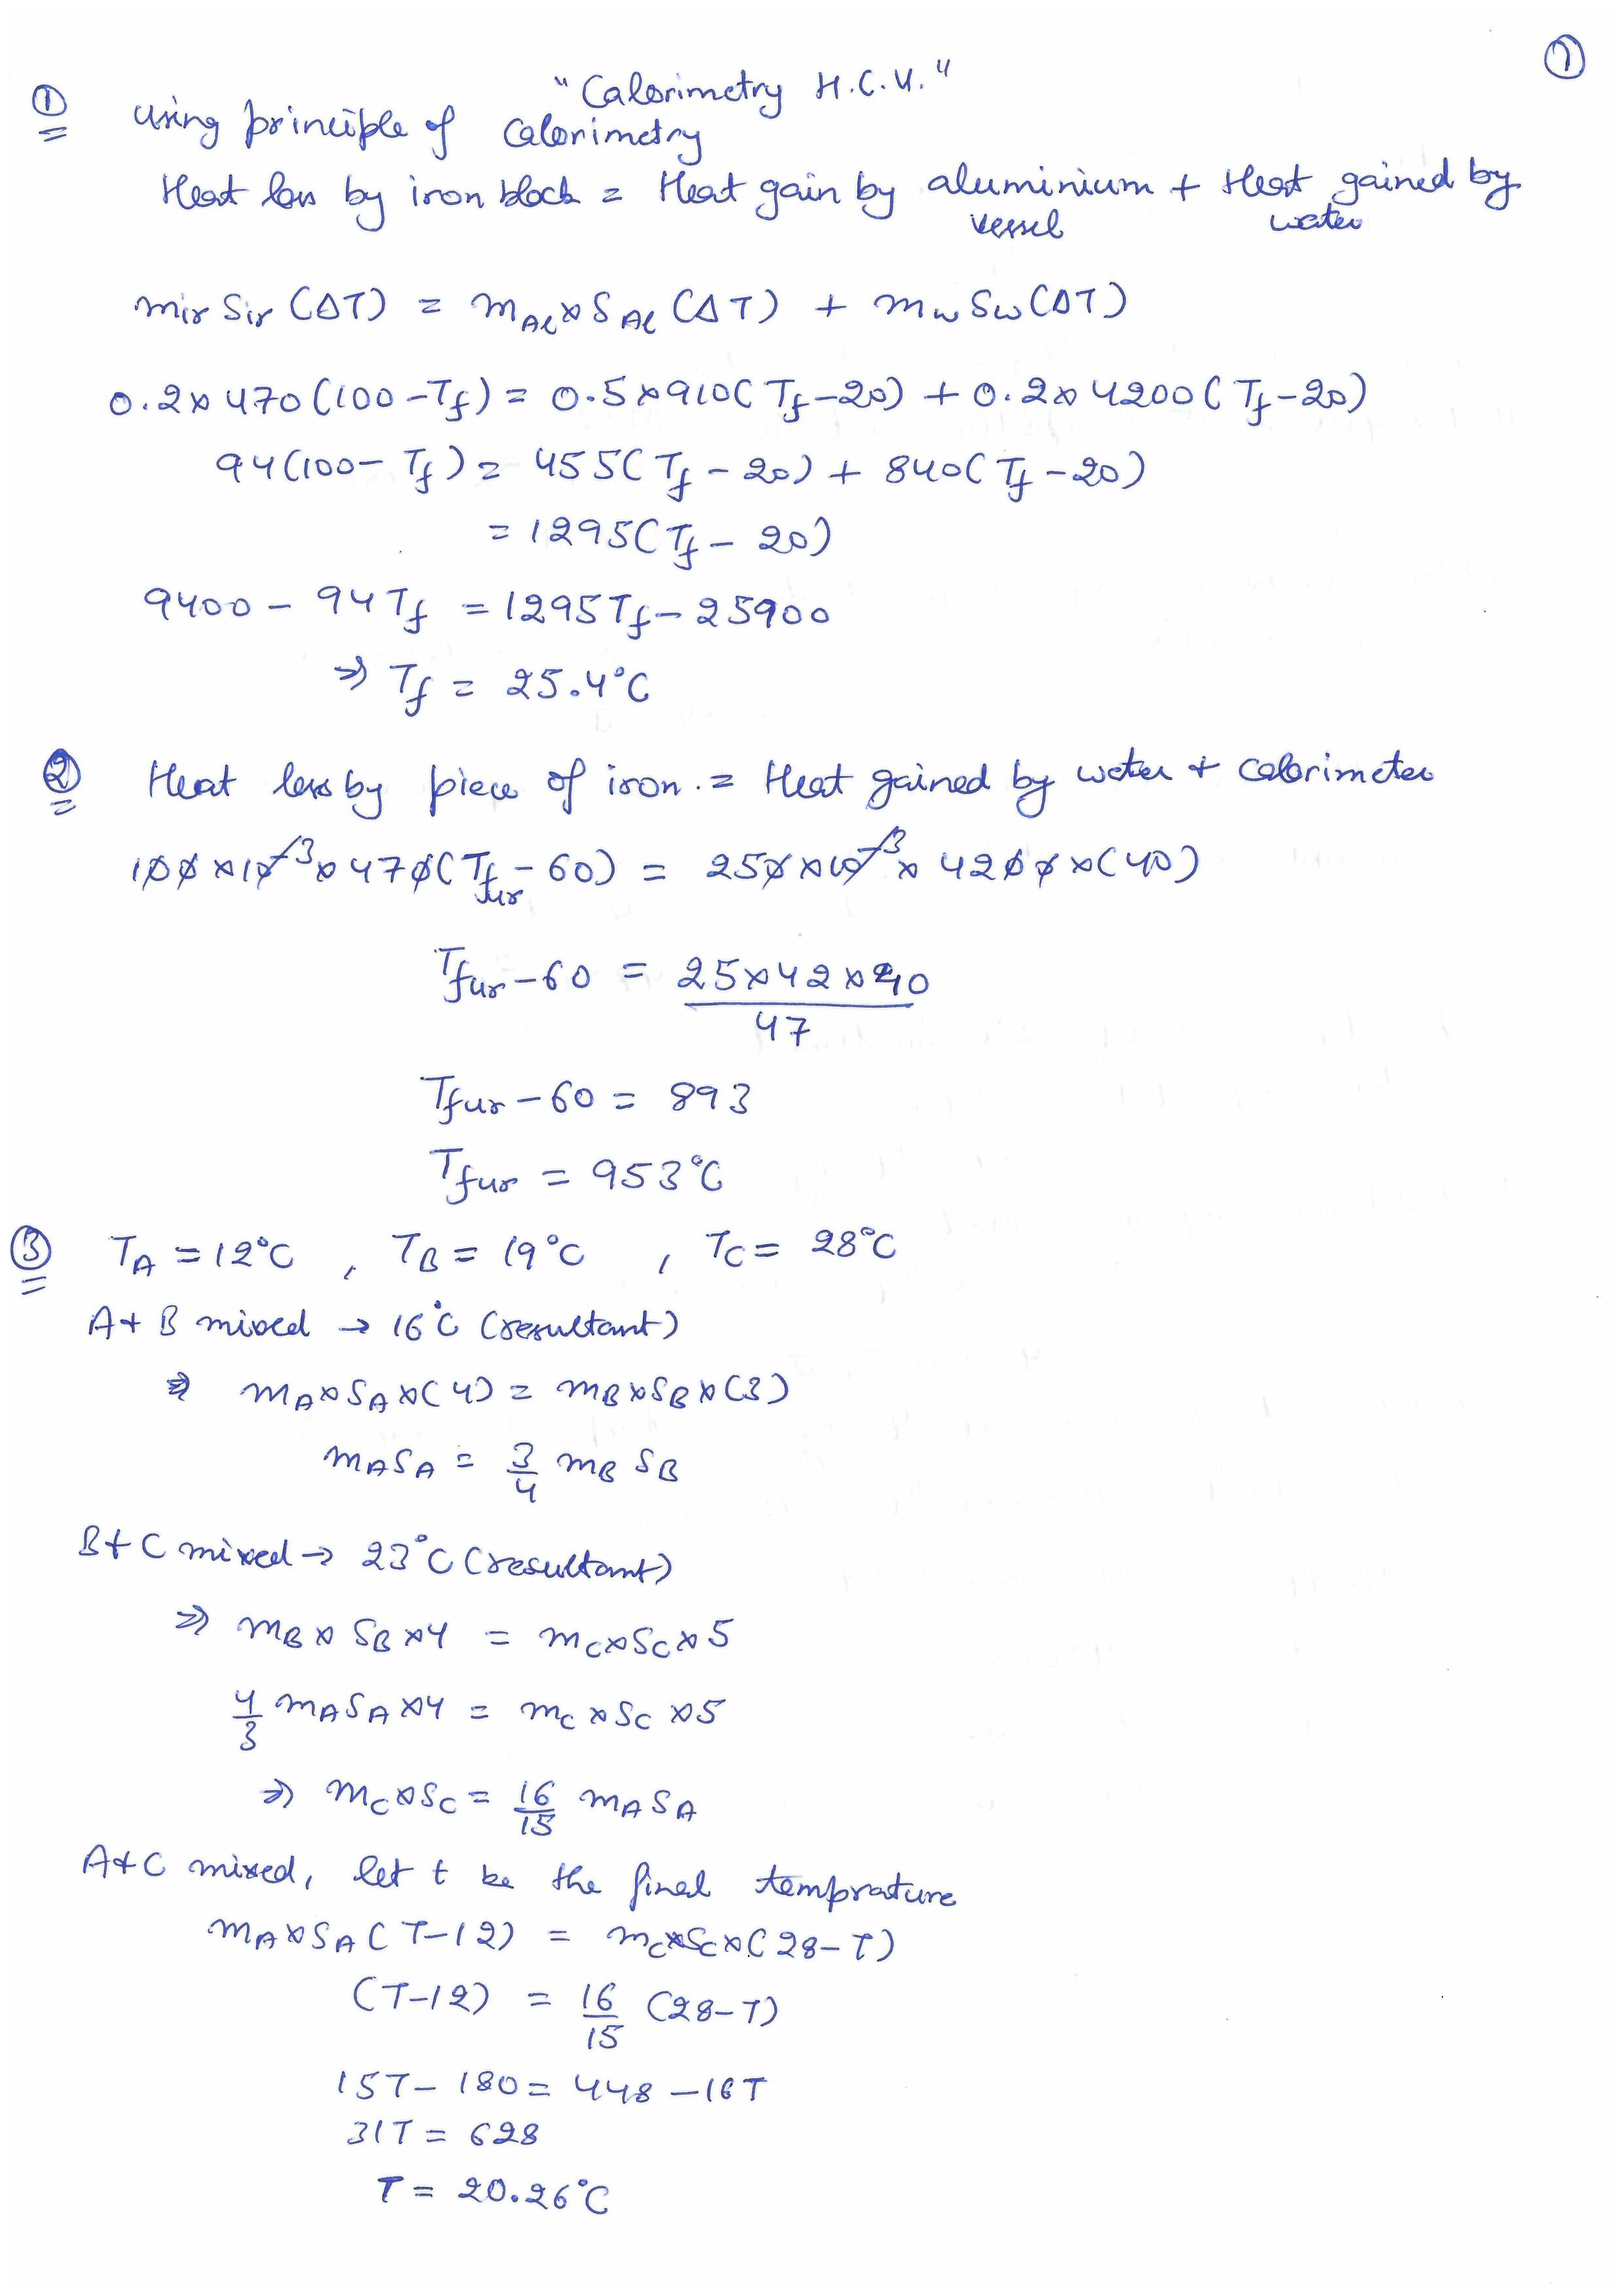 ①
"Calorimetry H.C.V."
① Using principle of Calorimetry
Heat loss by iron block = Heat gain by aluminium vessel + Heat gained by water
mir Sir (ΔT) = mAl × SAl (ΔT) + mw Sw (ΔT)
0.2 × 470 (100 - Tf) = 0.5 × 910 (Tf - 20) + 0.2 × 4200 (Tf - 20)
94 (100 - Tf) = 455 (Tf - 20) + 840 (Tf - 20)
= 1295 (Tf - 20)
9400 - 94 Tf = 1295 Tf - 25900
⇒ Tf = 25.4°C
② Heat loss by piece of iron. = Heat gained by water + calorimeter
100 × 10⁻³ × 470 (Tfur - 60) = 250 × 10⁻³ × 4200 × (40)
Tfur - 60 = 25 × 42 × 40 / 47
Tfur - 60 = 893
Tfur = 953°C
③ TA = 12°C , TB = 19°C , TC = 28°C
A + B mixed → 16°C (resultant)
⇒ mA × SA × (4) = mB × SB × (3)
mA SA = 3/4 mB SB
B + C mixed → 23°C (resultant)
⇒ mB × SB × 4 = mC × SC × 5
4/3 mA SA × 4 = mC × SC × 5
⇒ mC × SC = 16/15 mA SA
A + C mixed, let t be the final temprature
mA × SA (T - 12) = mC × SC × (28 - T)
(T - 12) = 16/15 (28 - T)
15T - 180 = 448 - 16T
31T = 628
T = 20.26°C